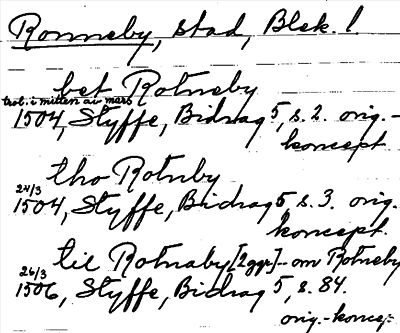 Ronneby, stad, Blek. l.
bet Rotneby
trol. i mitten av mars
1504, Styffe, Bidrag 5, s. 2. orig.-
koncept
tho Rotnby
24/3
1504, Styffe, Bidrag 5, s. 3. orig.
koncept.
til Rotnaby [2ggr] - om Rotneby
26/3
1506, Styffe, Bidrag 5, s. 84.
orig.-koncep-